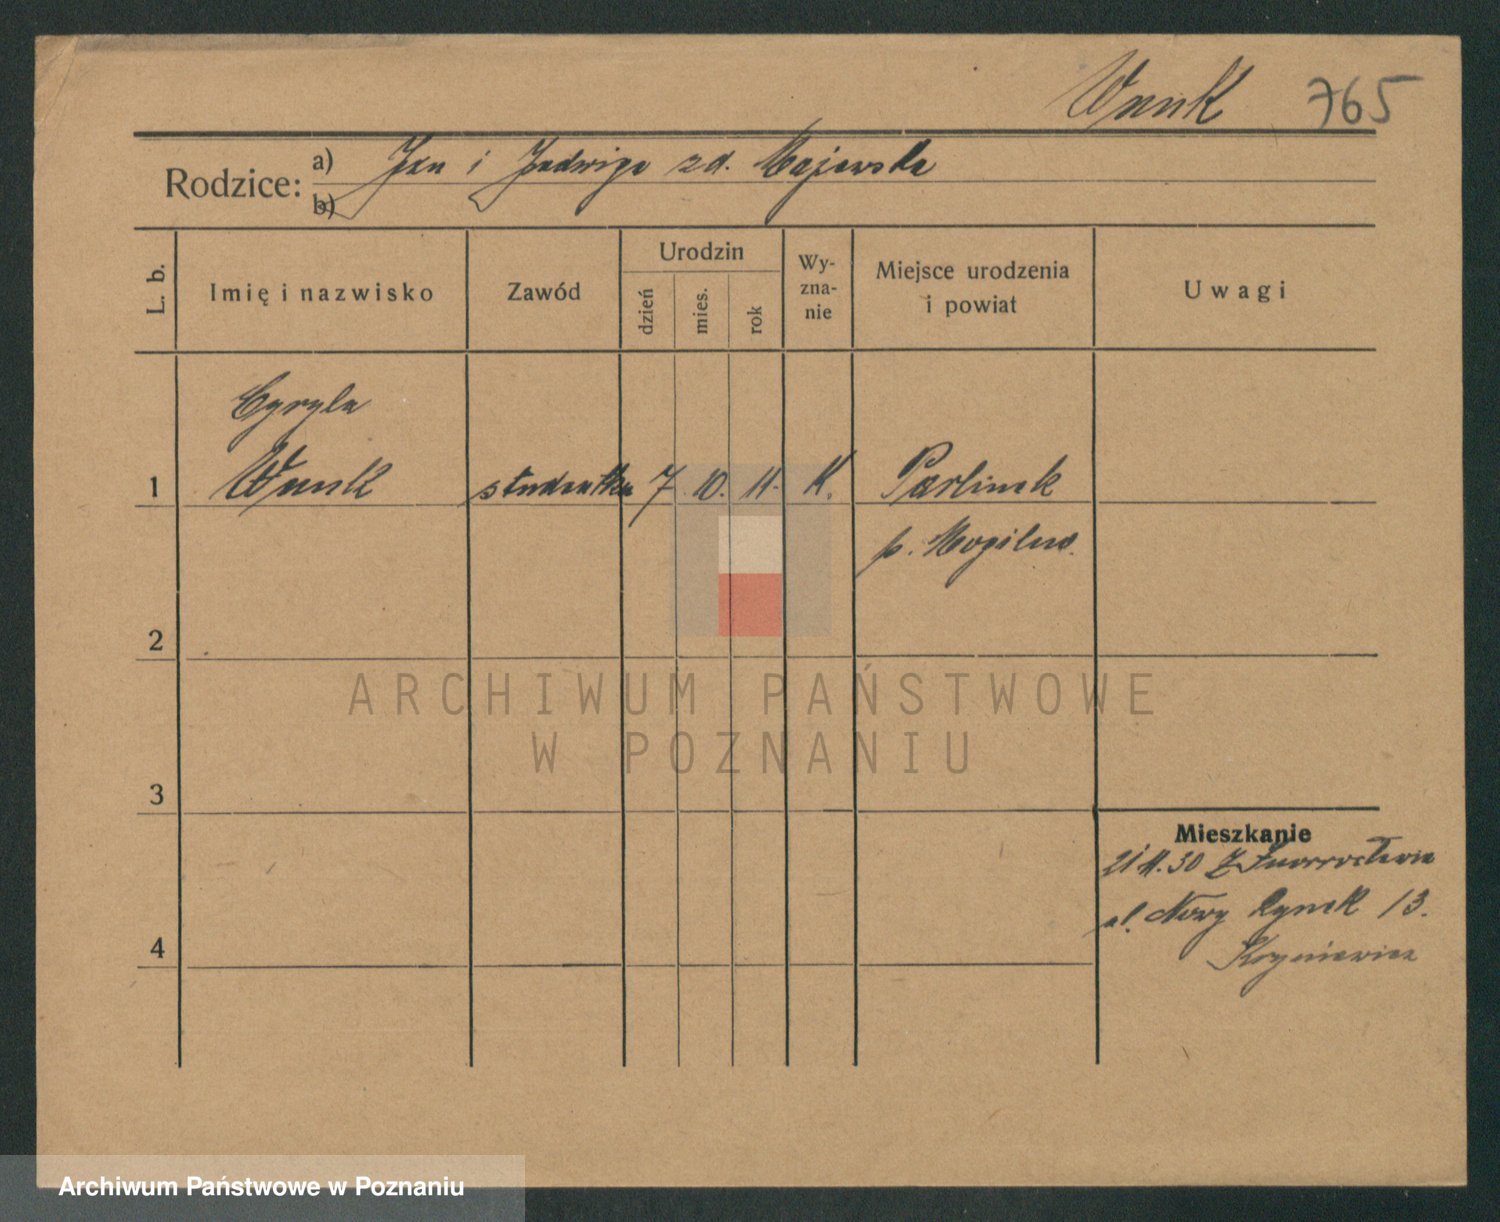 Wnuk 765
Rodzice: a) Jan i Jadwiga zd. Majewska
b)
L. b. Imię i nazwisko Zawód Urodzin dzień mies. rok Wy-zna-nie Miejsce urodzenia i powiat Uwagi
Cyryla
1 Wnuk studentka 7 10. 11. K. Parlinek
p. Mogilno.
2
ARCHIWUM PAŃSTWOWE
W POZNANIU
3
Mieszkanie
21 11.30 Z Inowrocławia
ul. Nowy Rynek 13.
4
Archiwum Państwowe w Poznaniu